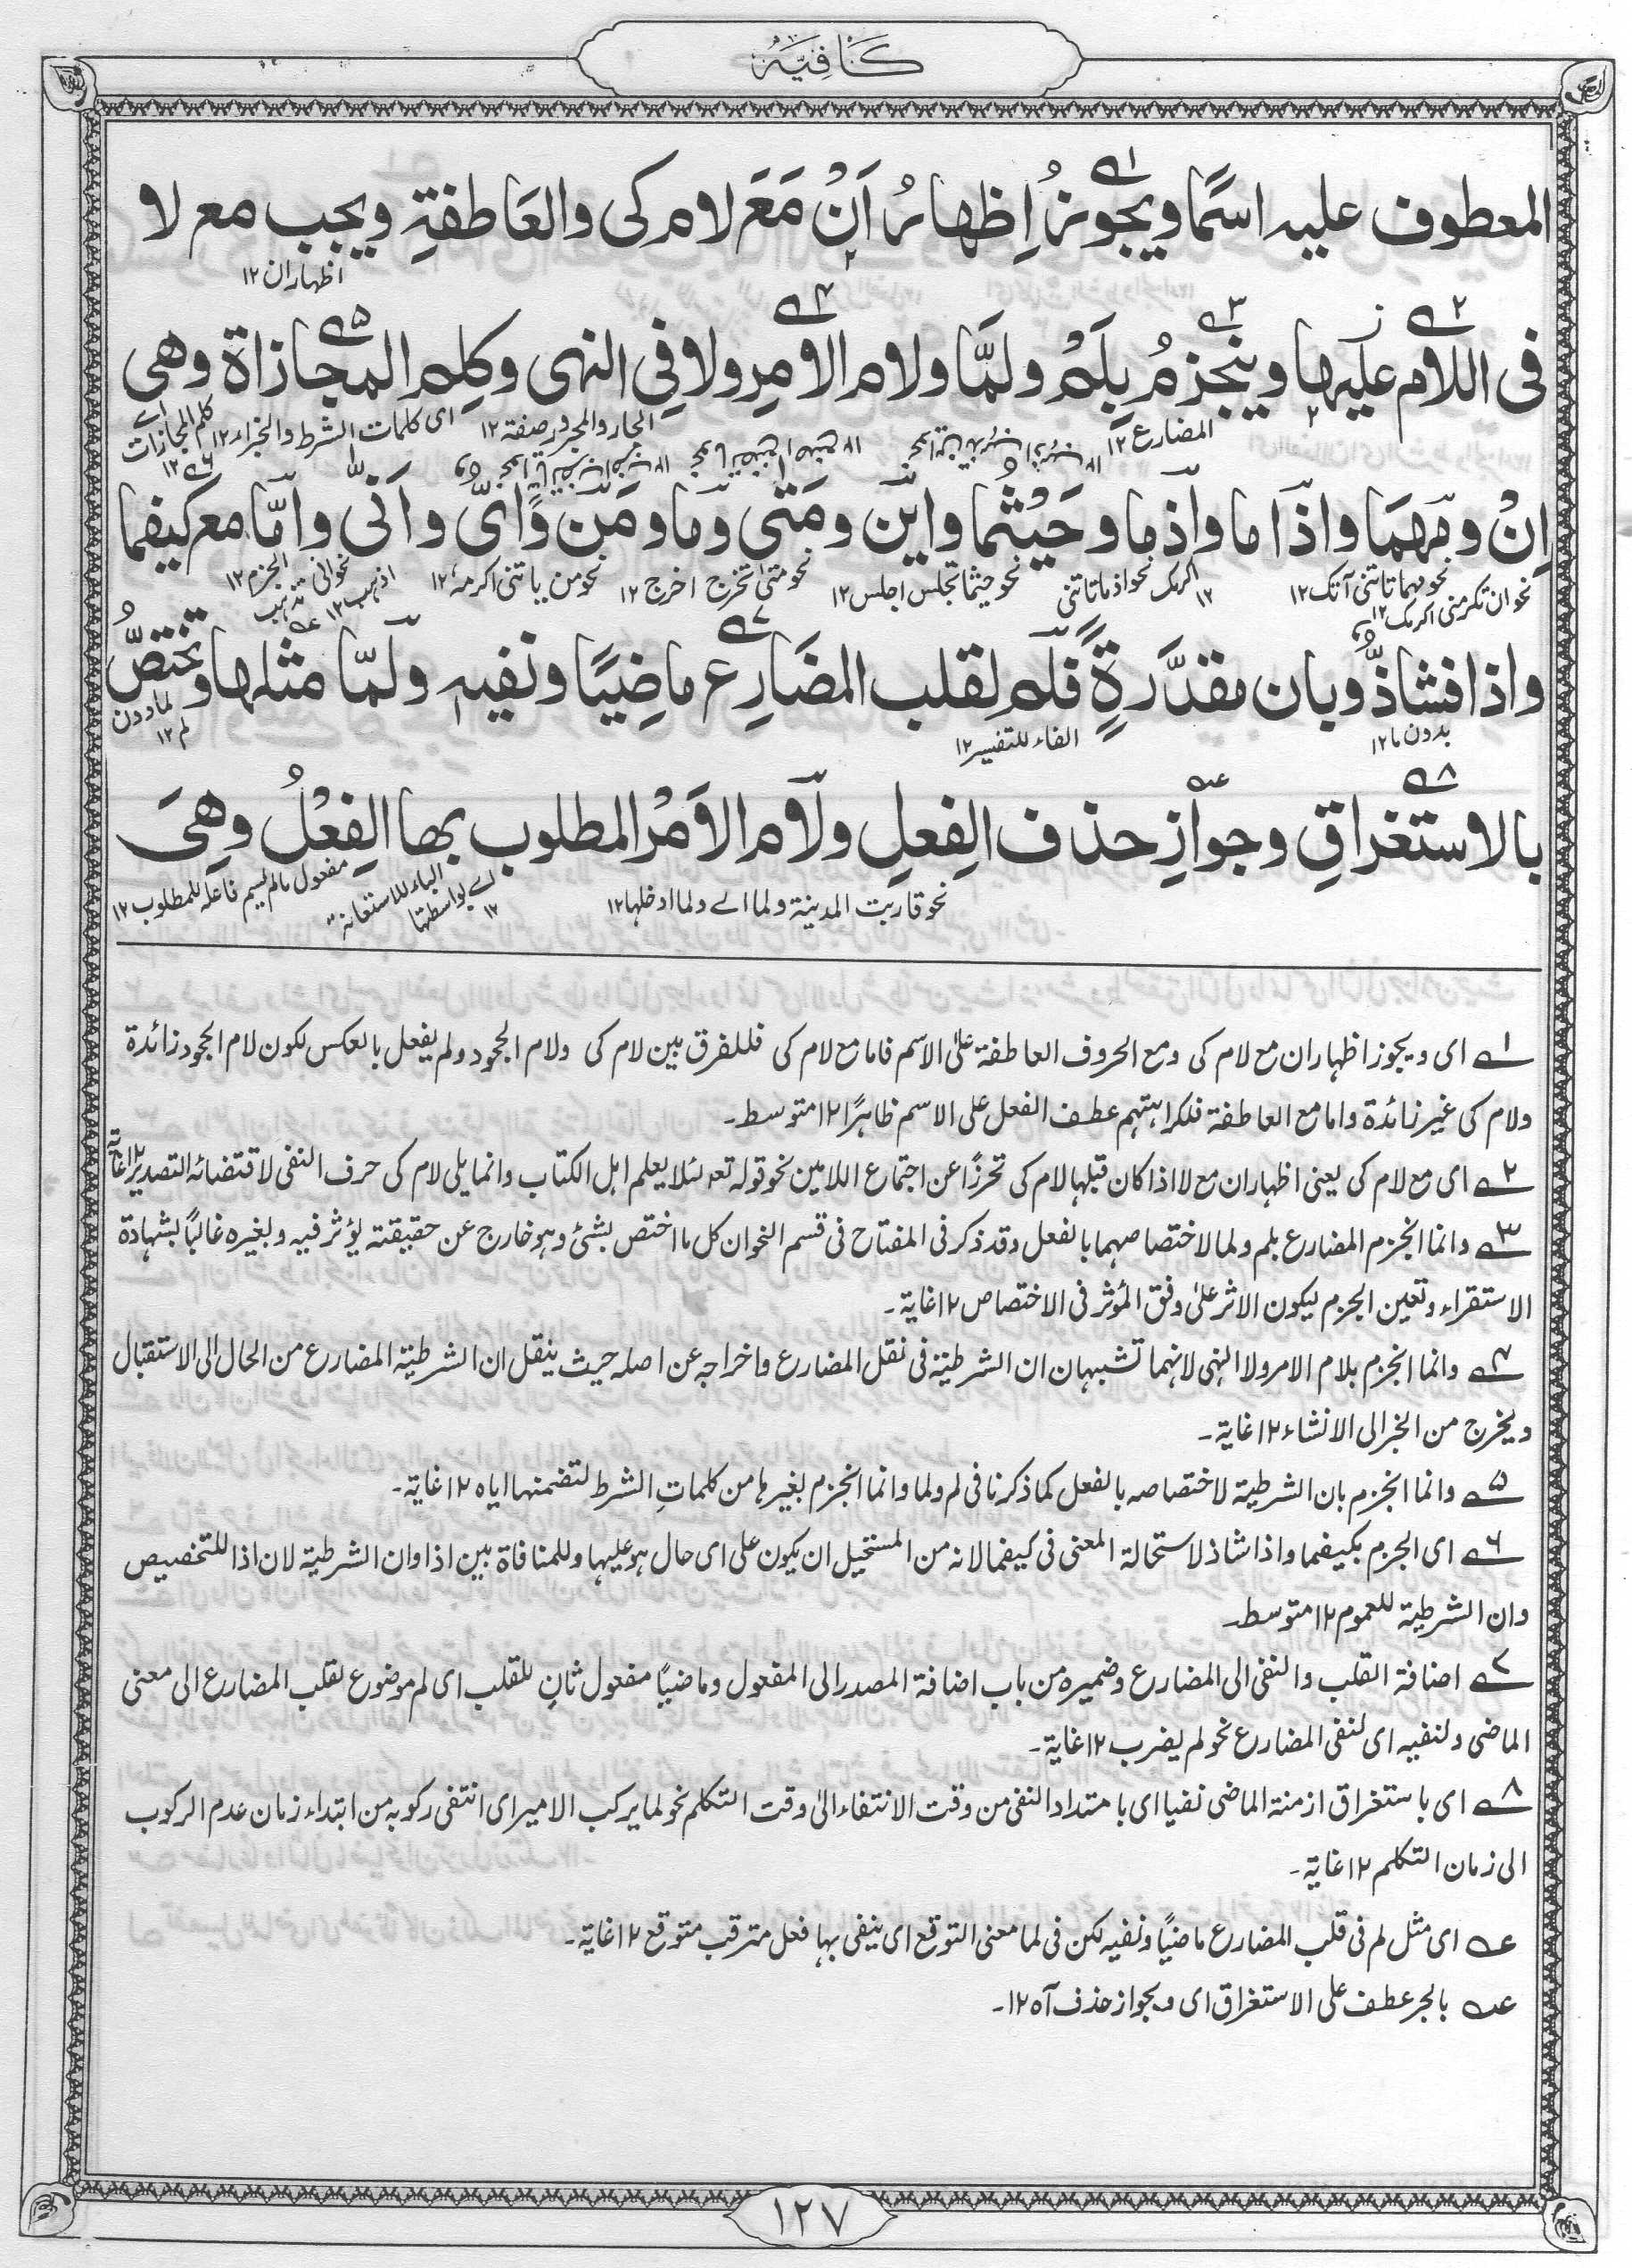 كَافِيَه
المعطوف عليه اسمًا ويجوزُ اِظهارُ اَنْ مَعَ لام كي والعَاطفةِ ويجب مع لا
اظهار ان ١٢
في اللام عليها وينجزمُ بِلَمْ ولمَّا ولام الامرِ ولا فِي النهى وكلِم المجازاة وهي
المضارع ١٢ الجار والمجرور صفة ١٢ اى كلمات الشرط والجزاء ١٢ كلم المجازات ١٢
اِنْ ومَهمَا واذا ما واذ ما وحَيْثُما واين ومَتى وما ومَن وَّاىٌّ واَنّى وامّا مع كيفما
نحو ان تكرمنى اكرمك ١٢ نحو مهما تاتنى آتك ١٢ نحو اذ ما تاتنى اكرمك ١٢ نحو حيثما تجلس اجلس ١٢ نحو متى تخرج اخرج ١٢ نحو من ياتنى اكرمه ١٢ نحو انى تذهب اذهب ١٢ الجزم ١٢
واذا فشاذٌّ وبان مقدَّرةٍ فلم لقلب المضَارِع ماضِيًا ونفيه ولَمّا مثلها وتختصُّ
بدون ما ١٢ الفاء للتفسير ١٢ لما دون لم ١٢
بالاستغراقِ وجوازِ حذف الفِعلِ ولام الاَمْر المطلوب بها الفِعْلُ وهِيَ
نحو قاربت المدينة ولما اے ولما ادخلها ١٢ اے بواسطتها ١٢ الباء للاستعانة مفعول ما لم يسم فاعله للمطلوب ١٢
١ اى ويجوز اظهار ان مع لام كى ومع الحروف العاطفة على الاسم فاما مع لام كى فللفرق بين لام كى ولام الجحود ولم يفعل بالعكس لكون لام الجحود زائدة
ولام كى غير زائدة واما مع العاطفة فلكراهتهم عطف الفعل على الاسم ظاهرًا ١٢ متوسط۔
٢ اى مع لام كى يعنى اظهار ان مع لا اذا كان قبلها لام كى تحرزًا عن اجتماع اللامين نحو قوله تعه لئلا يعلم اهل الكتاب وانما يلى لام كى حرف النفى لاقتضائه التصدير ١٢ غاية
٣ وانما انجزم المضارع بلم ولما لاختصاصهما بالفعل وقد ذكر فى المفتاح فى قسم النحو ان كل ما اختص بشئ وهو خارج عن حقيقته يؤثر فيه ولغيره غالبًا بشهادة
الاستقراء وتعين الجزم ليكون الاثر على وفق المؤثر فى الاختصاص ١٢ غاية۔
٤ وانما انجزم بلام الامر ولا النهى لانهما تشبهان ان الشرطية فى نقل المضارع واخراجه عن اصله حيث ينقل ان الشرطية المضارع من الحال الى الاستقبال
ويخرج من الخبر الى الانشاء ١٢ غاية۔
٥ وانما انجزم بان الشرطية لاختصاصه بالفعل كما ذكرنا فى لم ولما وانما انجزم بغيرها من كلماتِ الشرط لتضمنها اياه ١٢ غاية۔
٦ اى الجزم بكيفما واذا شاذ لاستحالة المعنى فى كيفما لانه من المستحيل ان يكون على اى حال هو عليها وللمنافاة بين اذا وان الشرطية لان اذا للتخصيص
وان الشرطية للعموم ١٢ متوسط
٧ اضافة القلب والنفى الى المضارع وضميره من باب اضافة المصدر الى المفعول وماضيًا مفعول ثانٍ للقلب اى لم موضوع لقلب المضارع الى معنى
الماضى ولنفيه اى لنفى المضارع نحو لم يضرب ١٢ غاية۔
٨ اى باستغراق ازمنة الماضى نفيا اى بامتداد النفى من وقت الانتفاء الى وقت التكلم نحو لما يركب الامير اى انتفى ركوبه من ابتداء زمان عدم الركوب
الى زمان التكلم ١٢ غاية۔
عه اى مثل لم فى قلب المضارع ماضيًا ونفيه لكن فى لما معنى التوقع اى ينفى بها فعل مترقب متوقع ١٢ غاية۔
عه بالجر عطف على الاستغراق اى وبجواز حذف آه ١٢۔
١٢٧